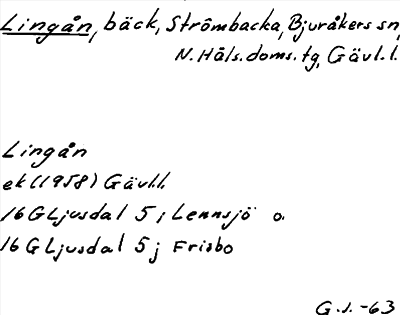 Lingån, bäck, Strömbacka, Bjuråkers sn,
N. Häls. doms. tg, Gävl. l.
Lingån
ek (1958) Gävl.l.
16 G Ljusdal 5 i Lennsjö o.
16 G Ljusdal 5 j Frisbo
G.J. -63